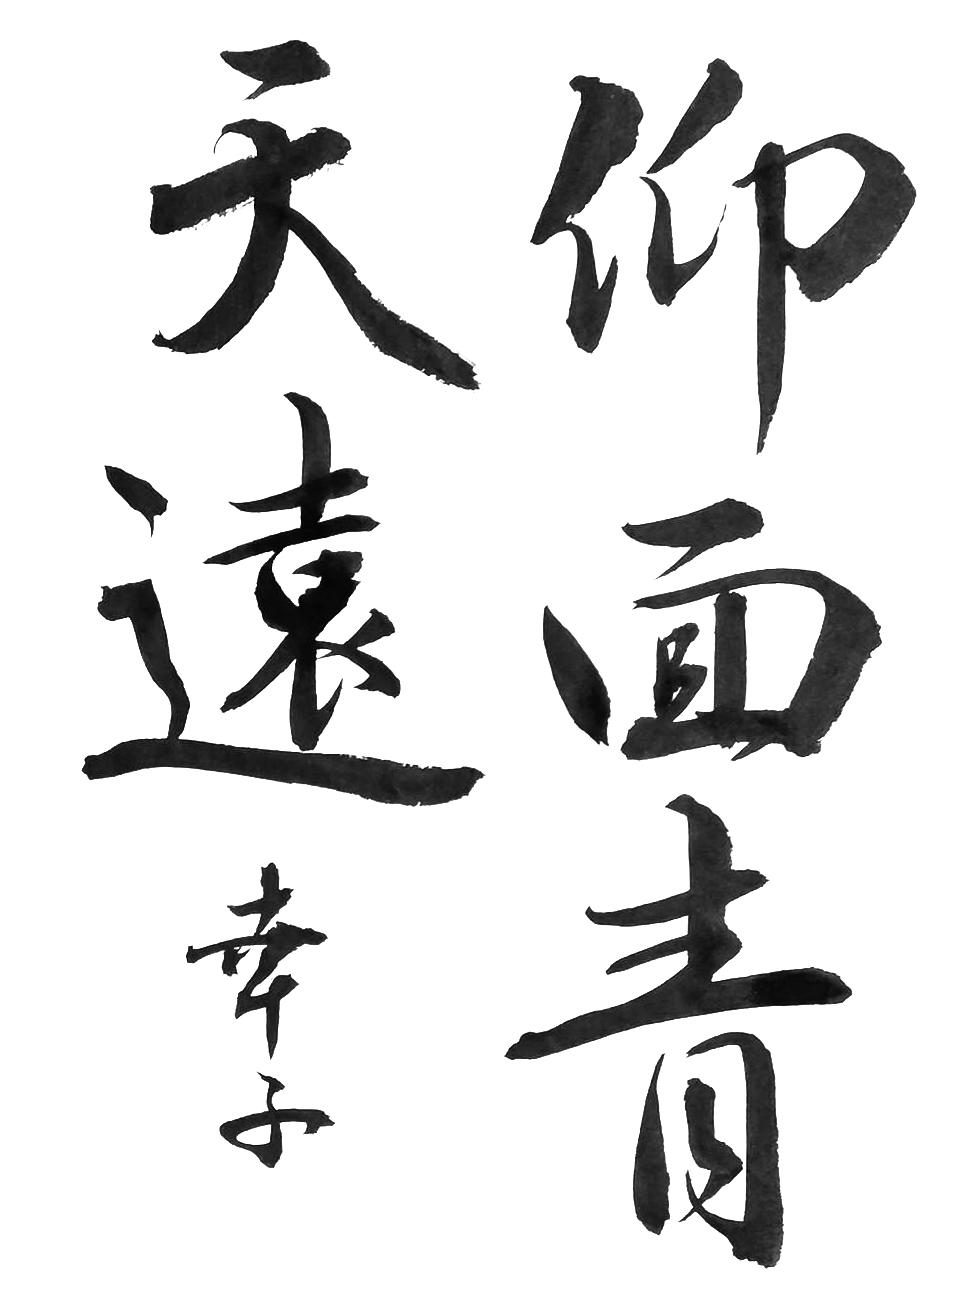 仰面青
天遠
幸子